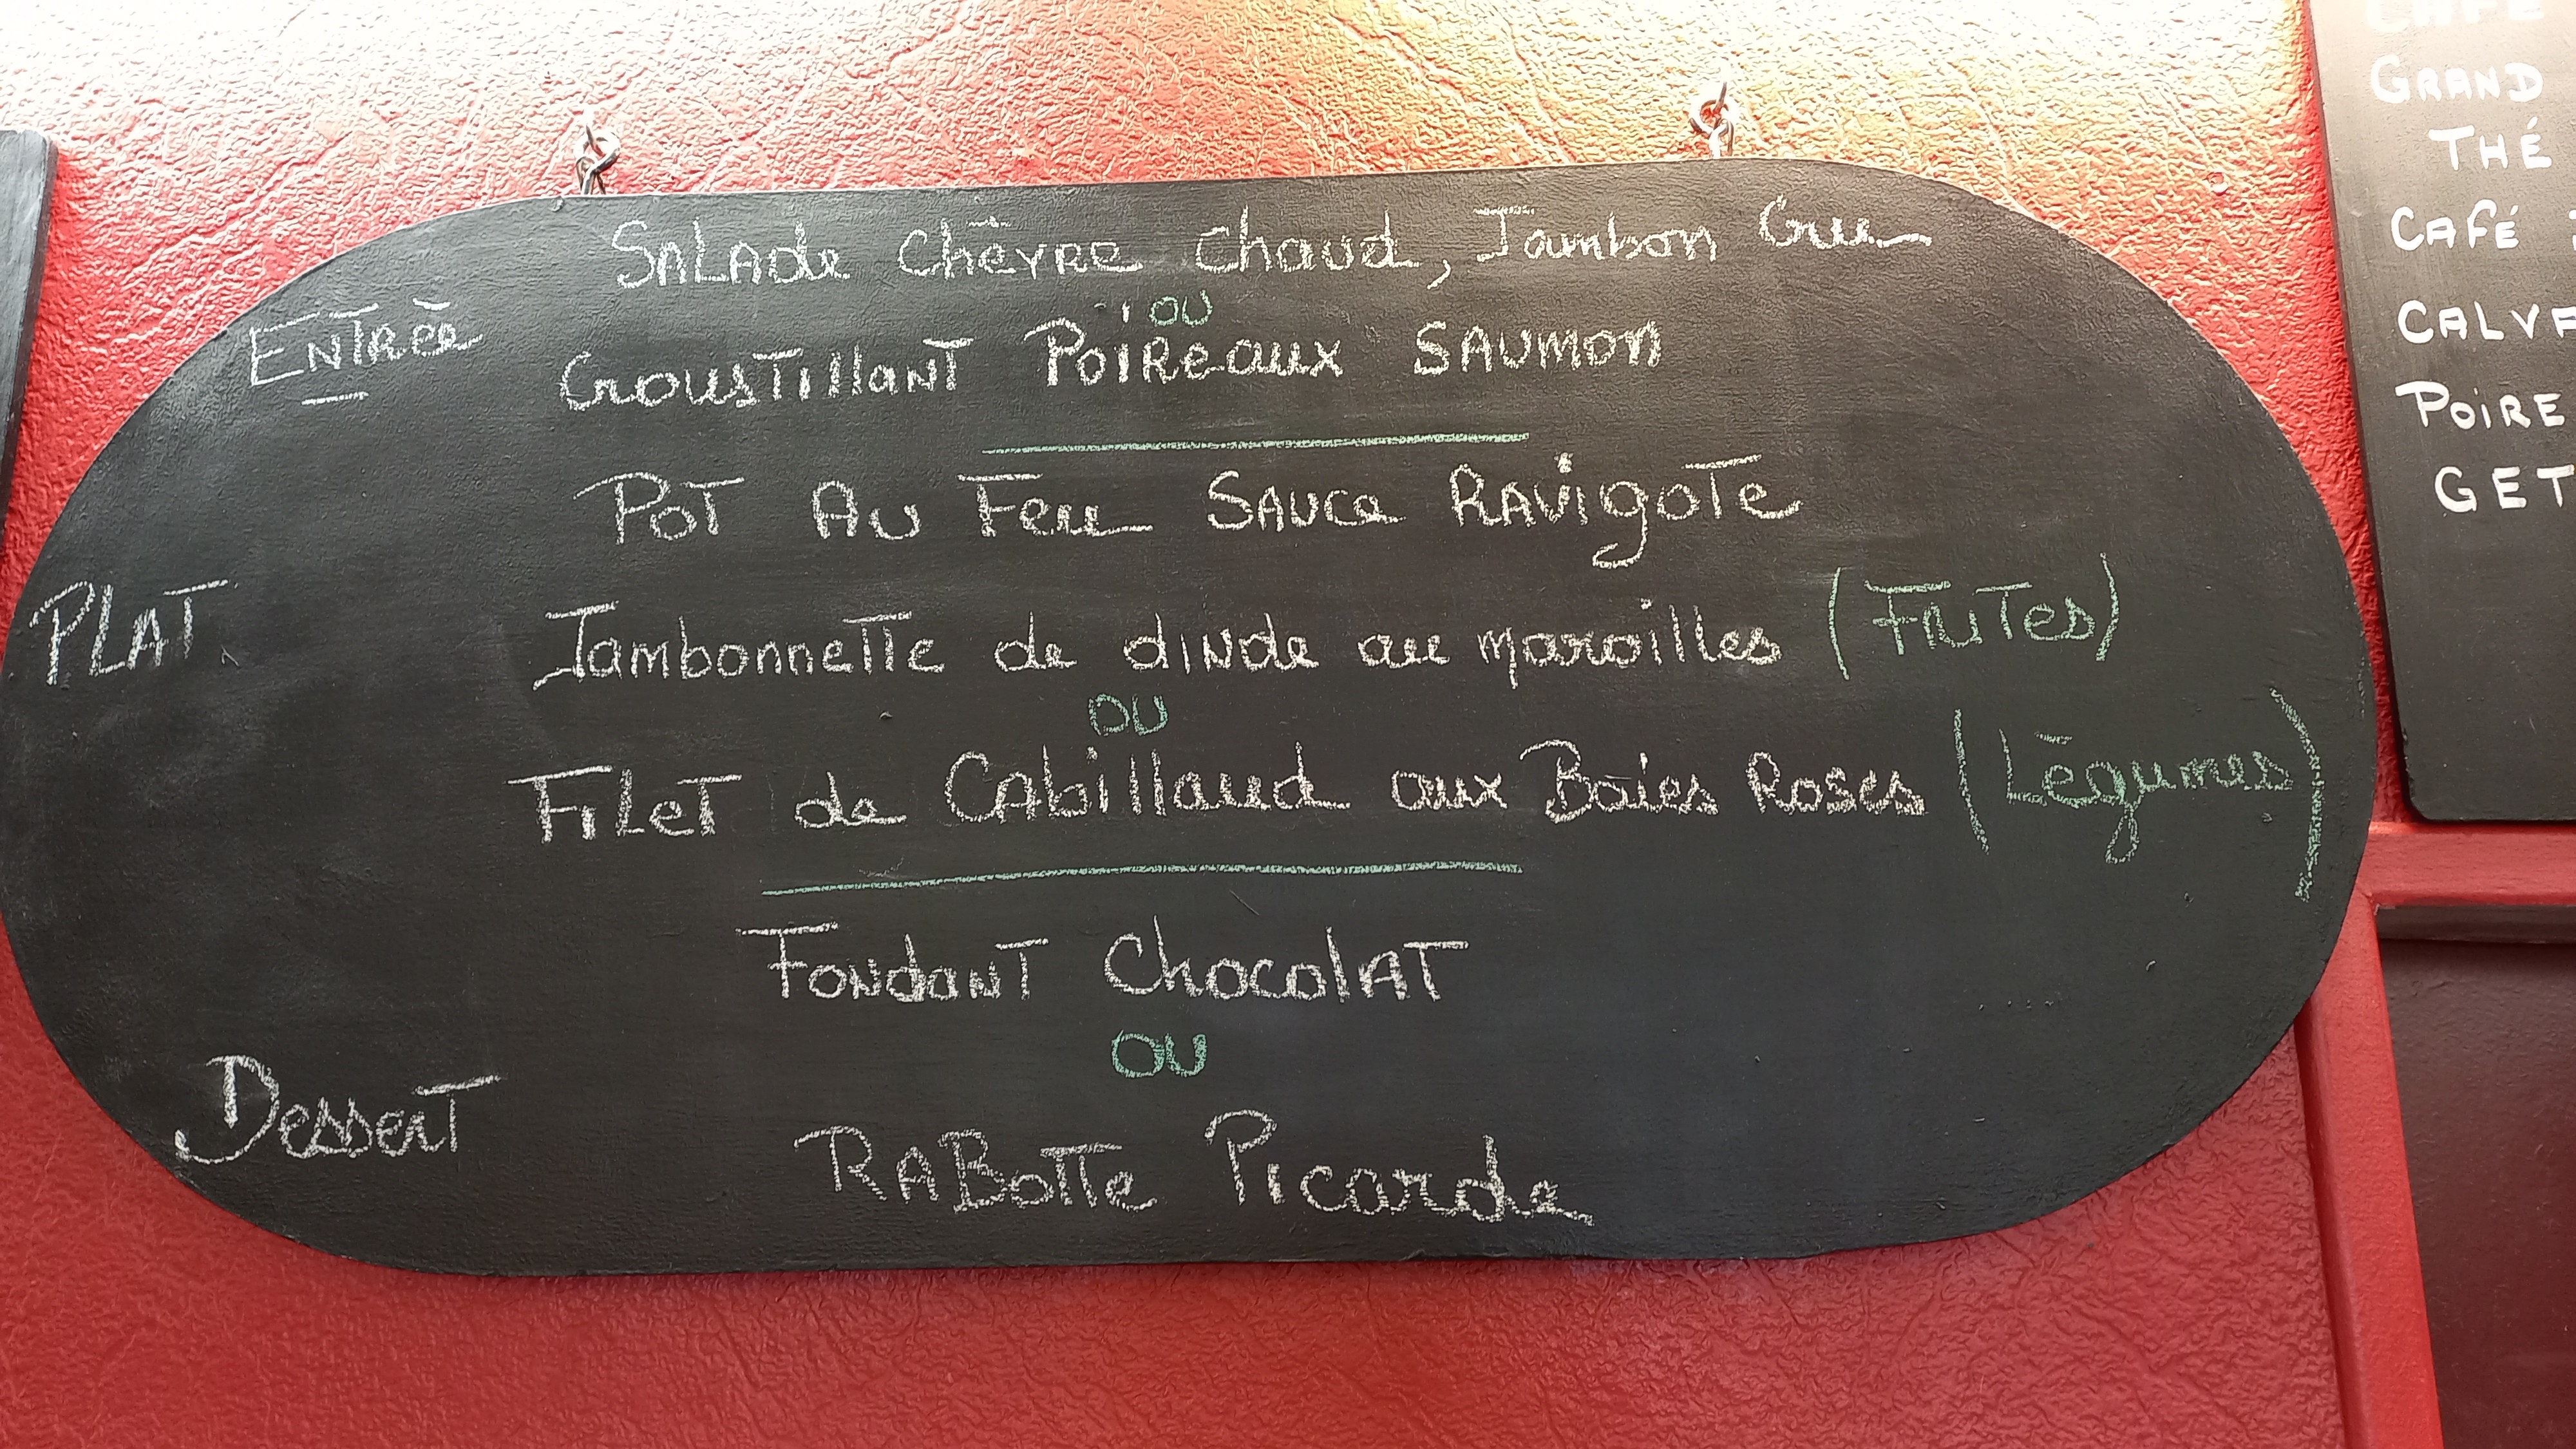 Salade Chèvre Chaud, Jambon Cru
ou
Entrée
Croustillant Poireaux Saumon
Pot Au Feu Sauce Ravigote
PLAT
Jambonnette de dinde au maroilles (Frites)
ou
Filet de Cabillaud aux Baies Roses (Légumes)
Fondant Chocolat
ou
Dessert
Rabotte Picarde
GRAND
THÉ
CAFÉ
CALVA
POIRE
GET